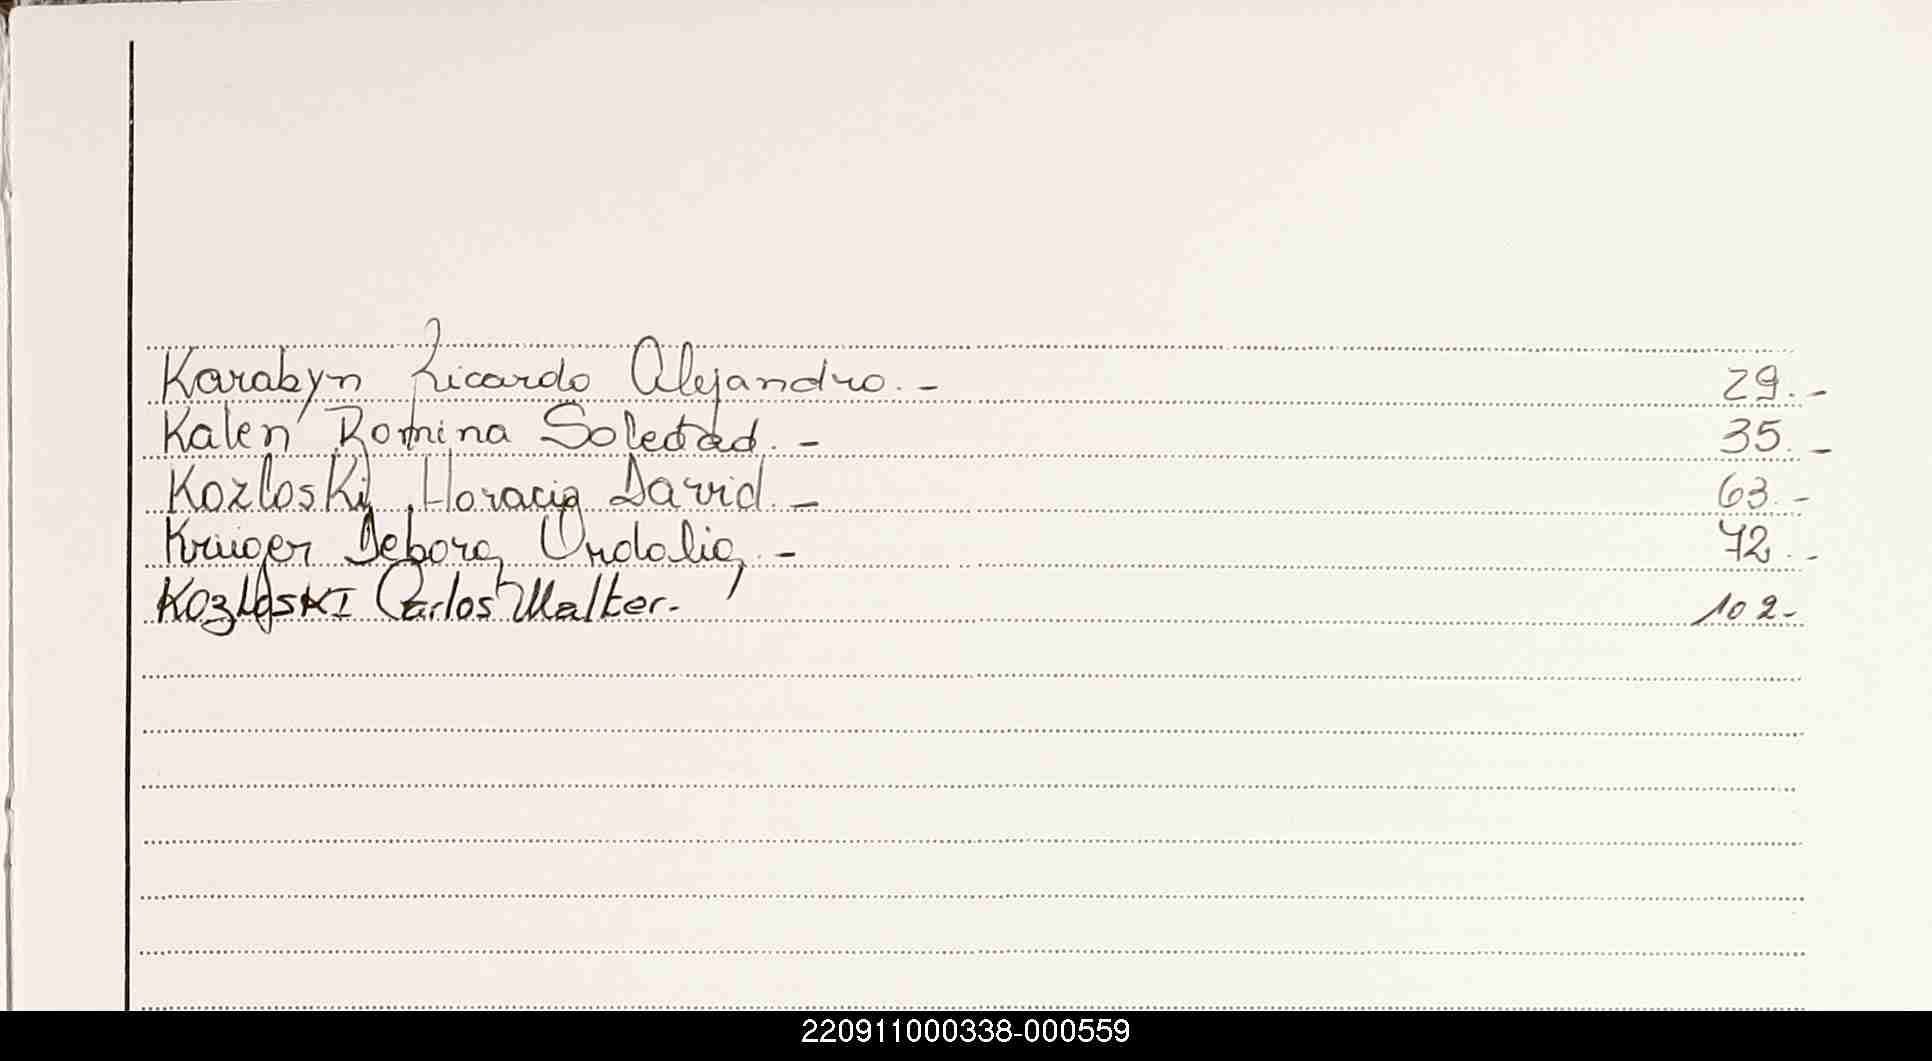 Karabyn Ricardo Alejandro.- 29.-
Kalen Romina Soledad.- 35.-
Kozloski, Horacio David.- 63.-
Kruger Debora Ordalia,.- 72.-
KozLosKI Carlos Walter.- 102-
220911000338-000559